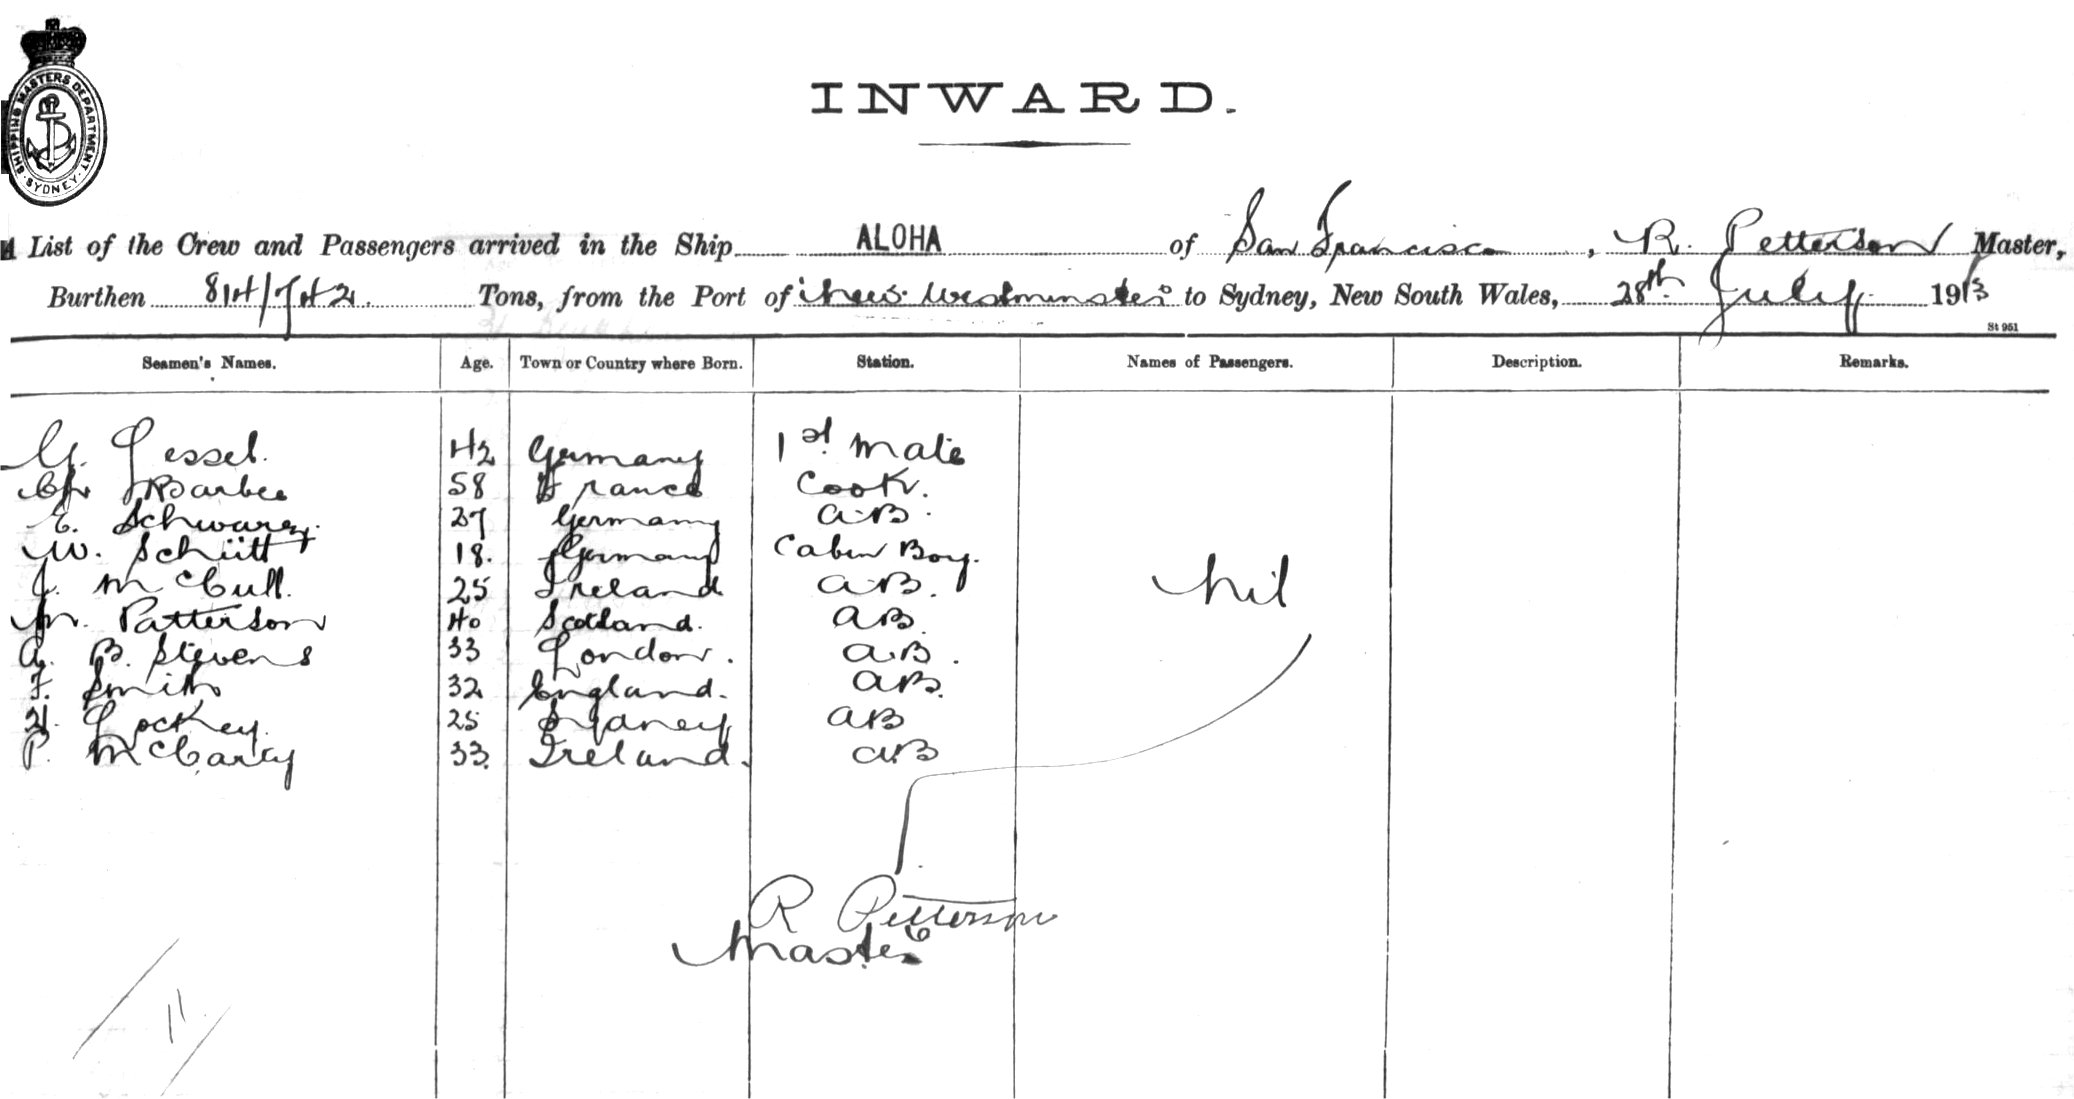 SHIPPING MASTERS DEPARTMENT
· SYDNEY ·
INWARD.
A List of the Crew and Passengers arrived in the Ship ALOHA of San Francisco, R. Petterson Master,
Burthen 814/742 Tons, from the Port of New Westminster to Sydney, New South Wales, 28th July 1913
St 951
Seamen's Names. Age. Town or Country where Born. Station. Names of Passengers. Description. Remarks.
G. Gessel. 42 Germany 1st Mate
Barbee 58 France Cook.
E. Schwarz. 27 Germany AB.
W. Schütt 18. Germany Cabin Boy.
J. McCull. 25 Ireland AB.
Nil
M. Patterson 40 Scotland. AB.
A. B. Stevens 33 London. AB.
F. Smith 32 England. AB.
H. Lockney. 25 Sydney AB
P. McCarty 33. Ireland. AB
R Petterson
Master
11